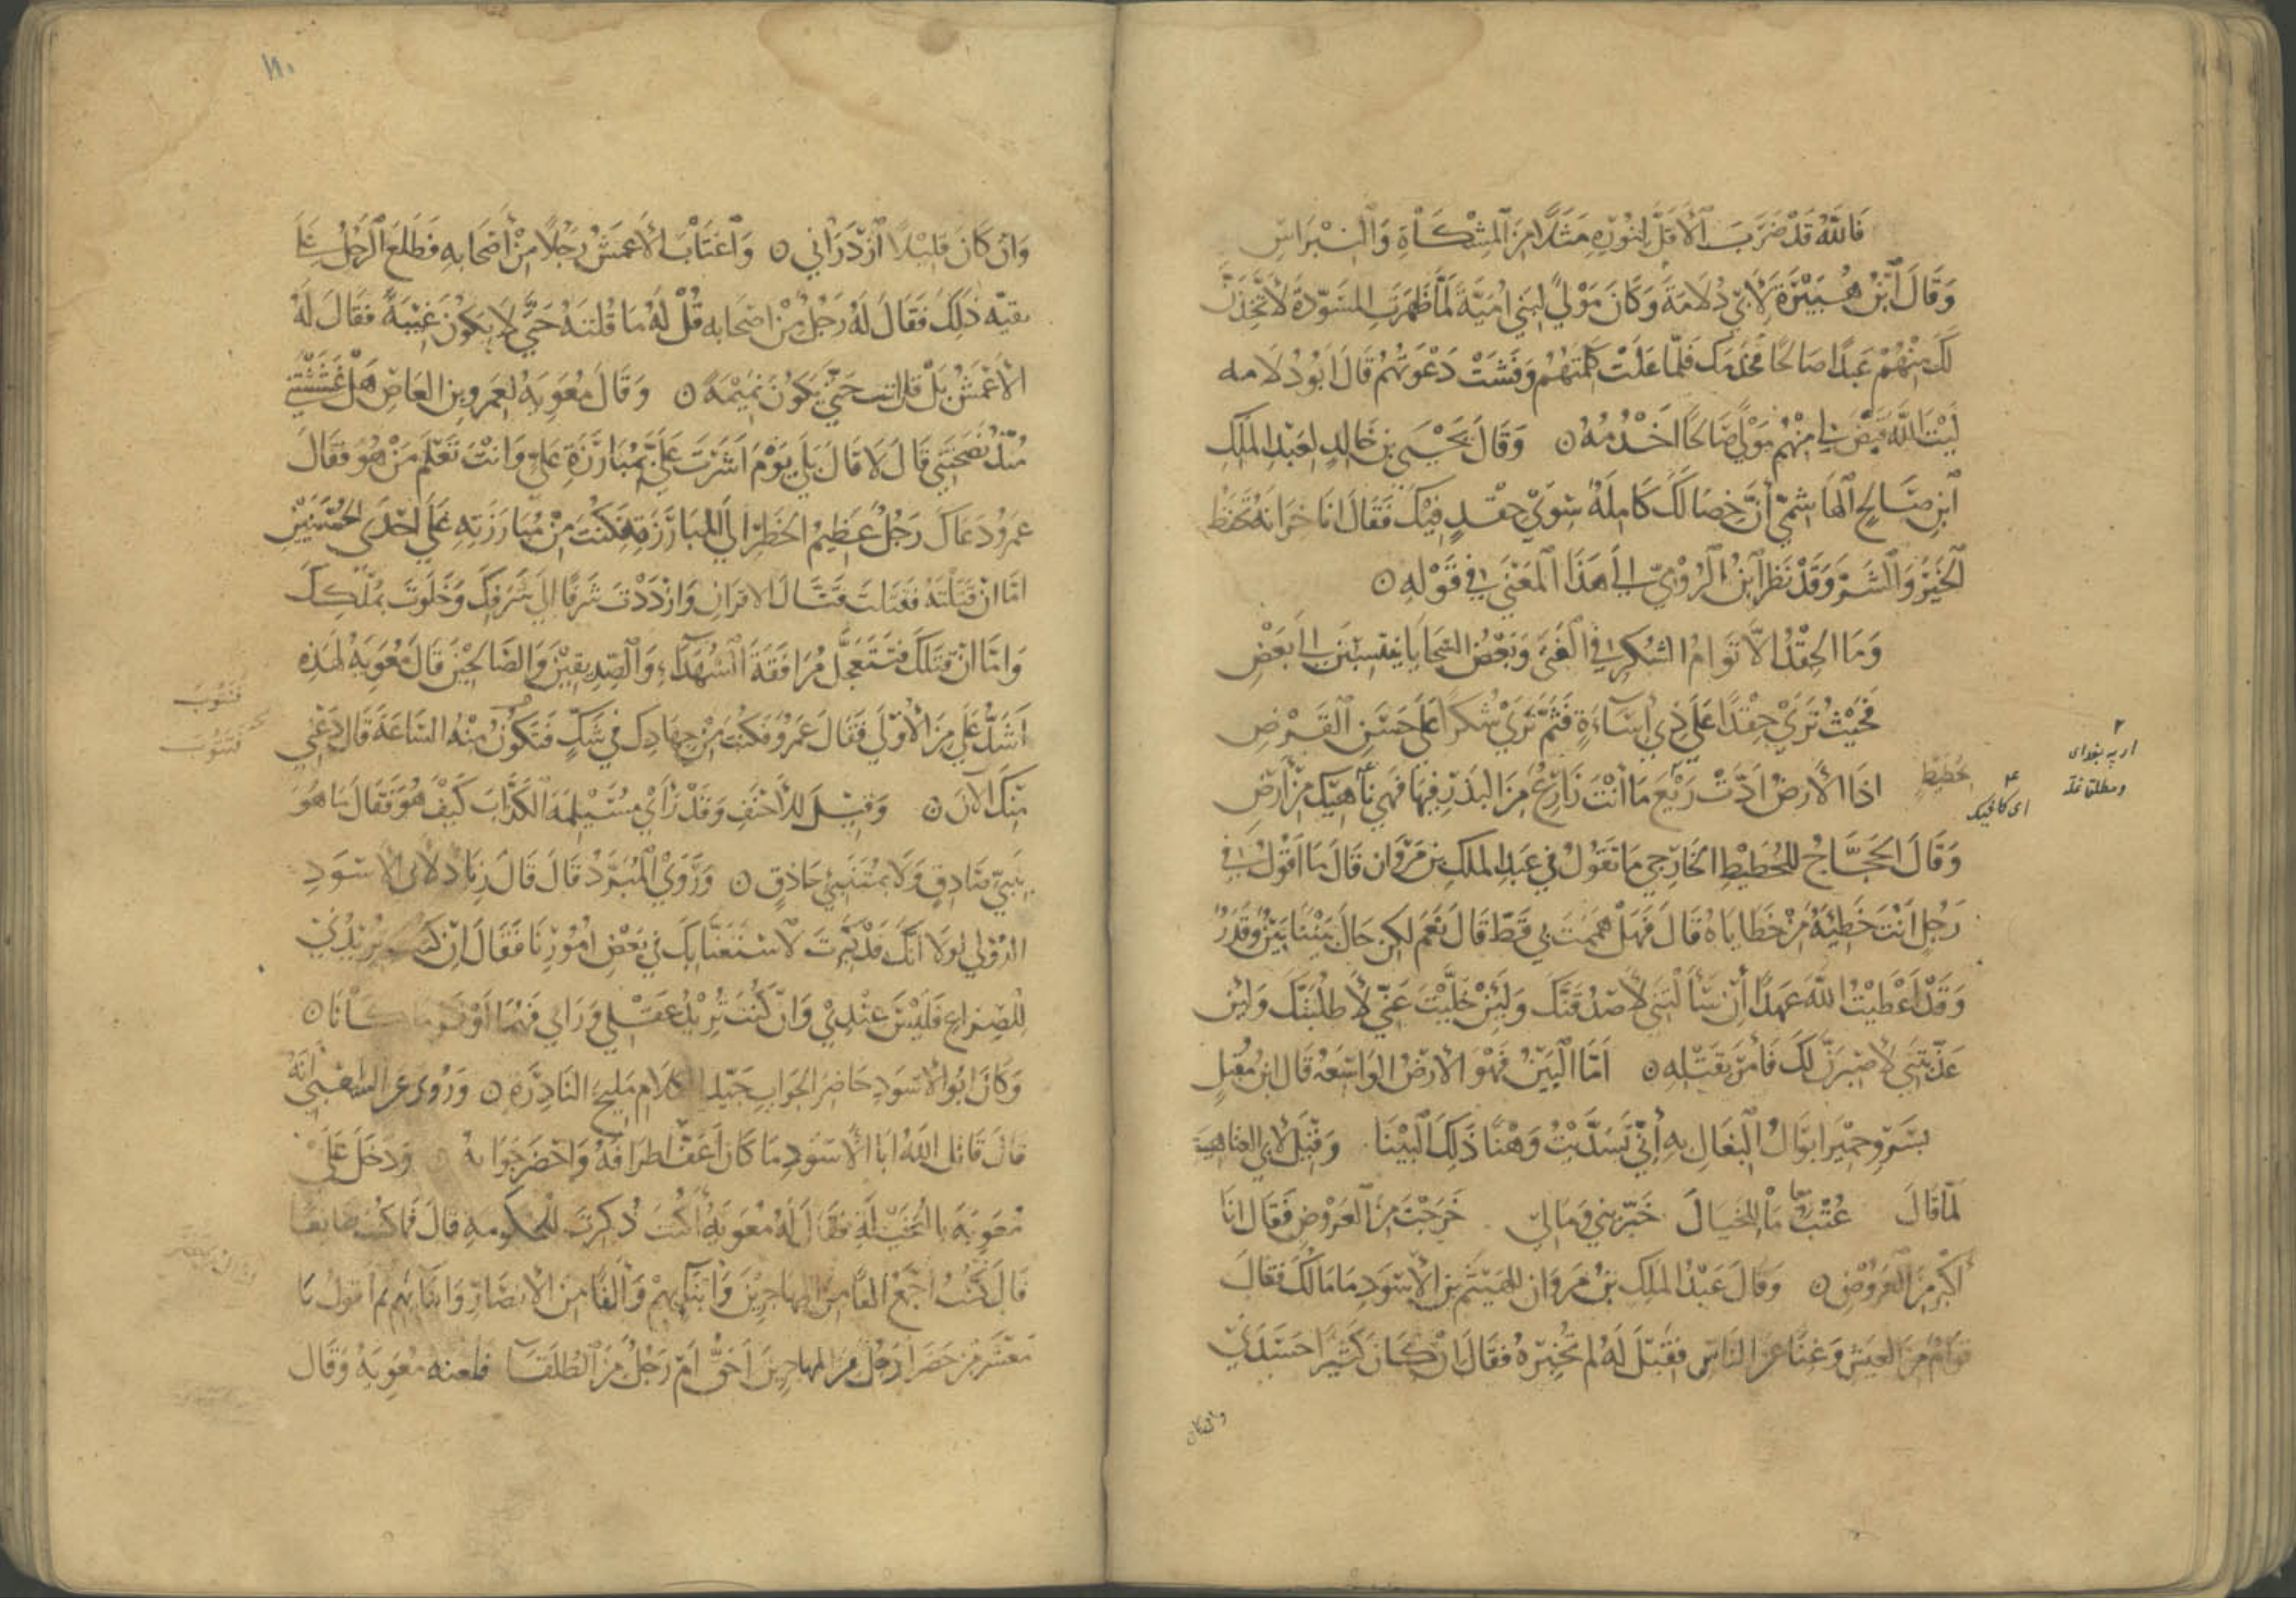 فَاللهُ قَدْ ضَرَبَ الْأَقَلَّ لِنُوْرِهِ مَثَلًا مِنَ الْمِشْكَاةِ وَالنِّبْرَاسِ
وَقَالَ ابْنُ هُبَيْرَةَ لِأَبِي دُلَامَةَ وَكَانَ مَوْلًى لِبَنِي اُمَيَّةَ لَمَّا ظَهَرَتِ المُسَوّدَةُ لَأَتَّخِذَنَّ
لَكَ مِنْهُمْ عَبْدًا صَالِحًا يَخْدُمك فَلَمَّا عَلَتْ كَلِمَتُهُمْ وَفَشَتْ دَعْوَتُهُمْ قَالَ اَبُو دُلَامه
لَيْتَ اللهَ قَيَّضَ لي مِنْهُمْ مَوْلًى صَالِحًا اَخْدُمُهُ ۝ وَقَالَ يَحْيَى بن خَالِدٍ لِعَبْدِ المَلِكِ
ابْنِ صَالِحٍ الْهَاشِمِيِّ أَنَّ خِصَالَكَ كَامِلَةٌ سِوَى حِقْدٍ فِيْكَ فَقَالَ اَنَا خزَانَة تحْفَظ
الْخَيْرَ وَالشَّرَّ وَقَدْ نَظَرَ ابْنُ الرُّوْمِيّ الى هَذَا الْمَعْنَى فِي قَوْلِهِ ۝
وَمَا الحِقْدُ الَّا تَوْامُ الشُكْرِ فِي الْفَتَى وَبَعْضُ السَّجَايَا يَنْتَسِبْنَ الَى بَعْضِ
فَحَيْثُ تَرَى حِقْدًا عَلَى ذِي اِسَاءَةٍ فَثَمَّ تَرَى شُكْرًا عَلَى حَسَنِ الْقَرْضِ
اذَا الْاَرضُ ادَّتْ رَيْعَ مَا اَنْتَ زَارِعٌ مِنَ البَذْرِ فِيهَا فَهِي نَاهِيْكَ مِنْ اَرْضِ
وَقَالَ الحَجَّاجُ للحُطَيْطِ الخَارِجي مَا تَقُولُ فِي عَبْدِ المَلكِ بنِ مَرْوَان قَالَ مَا اَقُوْلُ فِي
رَجُلٍ اَنْتَ خَطِيْئَةٌ مِنْ خَطَايَاهُ قَالَ فَهَلْ هَمَمْتَ بي قَطُّ قَالَ نَعَمْ لكِن حَالَ بَيْنَنَا بَيْنٌ وَقَدَرٌ
وَقَدْ اَعْطَيْتُ اللهَ عَهْدًا أَنْ سَأَلْتَنِي لَأَصْدُقَنَّكَ وَلَئِنْ خَلَّيْتَ عَنِّي لَأَطْلُبَنَّكَ وَلَئِن
عَذّبْتَنِي لَأَصْبِرَنَّ لَكَ فَأَمَرَ بِقَتْلِهِ ۝ اَمَّا الْبِيْنُ فَهْوَ الْاَرضُ الوَاسِعَهُ قَالَ ابنُ مُقْبِلٍ
بِسَرْوِ حِمْيَرَ ابْوَالُ الْبِغَالِ بِهِ أَنَّى تَسَدَّيْتِ وَهْنًا ذَلِكَ الْبِيْنَا وَقِيْلَ لأَبِي العَتَاهِيَة
لَمَّا قَالَ عُتْبُ مَا لِلْخَيَالِ خَبِّرِيْنِي وَمَا لِي خَرَجْتَ مِنَ الْعَرُوضِ فَقَالَ انَا
أكْبَرُ مِنَ الْعَرُوْضِ ۝ وَقَالَ عَبْدُ المَلِكِ بْنُ مَرْوَان لِلهَيْثَم بنِ الأَسْوَدِ مَا مَالُكَ فَقَالَ
قوَامٌ مِنَ العَيْشِ وَغِنًا عَنِ النَّاسِ فَقِيْلَ لَهُ لِمَ لَمْ تُخْبِرْهُ فَقَالَ اِنْ كَانَ كَثِيْرًا حَسَدَنِي
وان كان
بحُطَيْطٍ
اى كافيك
وَانْ كَانَ قَلِيْلًا ازْدَرَانِي ۝ وَاغْتَابَ الأَعمَشُ رَجُلًا مِنْ أَصْحَابِهِ فَطَلَعَ الرَّجُلُ عَلَى
بقيّه ذَلِكَ فَقَالَ لَهُ رَجُلٌ مِنْ اصْحَابه قُلْ لَهُ مَا قُلْتَهُ حَتَّى لَا يَكُوْنَ غِيْبَةً فَقَالَ لَهُ
الأَعْمَشُ بَلْ قل انت حَتَّى يَكُوْنَ نَمِيْمَةً ۝ وَقَالَ مُعَوِيَهُ لعَمرو بنِ العَاصِ هَلْ غَشَشْتَنِي
مُنْذُ نَصَحْتَنِي قَالَ لَا قَالَ بَلَى يَوْمَ اَشَرْتَ عَلَيَّ بِمُبَارَزَةِ عَلِيّ وَانْتَ تَعْلَمُ مَنْ هُوَ فَقَالَ
عَمْرو دَعَاكَ رَجُلٌ عَظِيمُ الخَطَرِ الَى المُبَارَزَةِ فَكُنْتَ مِنْ مُبَارَزَتِهِ عَلَى اِحْدَى الحُسْنَيَيْنِ
امَّا انْ قَتَلْتَهُ فَقَتَلْتَ قَتَّالَ الاقرَانِ وَازْدَدْتَ شَرَفًا اِلَى شَرَفِكَ وَخَلَوْتَ بمُلْكِكَ
وَامَّا انْ قَتَلَكَ فَتَتَعَجَّلُ مُرَافَقَةَ الشُهَدَآءِ وَالصِّدِيقِيْنَ وَالصَّالِحِيْنَ قَالَ مُعَوِيَهُ لَهَذِهِ
اَشَدُّ عَلَيَّ مِنَ الْأُوْلَى فَقَالَ عَمْرو فَكُنْتَ مِنْ جِهَادِكَ فِي شَكٍّ فَتَكُوْنُ مِنْهُ السَّاعَةَ قَالَ دَعْنِي
مِنْكَ الآنَ ۝ وَقِيْلَ للأَحْنَفِ وَقَدْ رَاَى مُسَيْلِمَةَ الْكَذَّابَ كَيْفَ هُوَ فَقَالَ مَا هُوَ
بِنَبِيّ صَادِقٍ وَلَا بمُتَنَبِّئٍ حَاذِقٍ ۝ وَرَوَى الْمُبَرَّدُ قَالَ قَالَ زِيَاد لأَبى الاَسْوَدِ
الدُؤلِي لَولَا انَّكَ قَدْ كَبِرْتَ لَاسْتَعَنَّا بِكَ فِي بَعْضِ اُمُوْرِنَا فَقَالَ اِنْ كنت تُرِيْدُنِي
لِلصِّرَاعِ فَلَيْسَ عِنْدِي وَانْ كُنْتَ تُرِيْدُ عَقْلِي وَرَاىِي فَهُمَا اَوْفَر مَا كَانَا ۝
وَكَانَ ابُو الاَسْوَدِ حَاضِرَ الجَوَابِ جَيّدَ الكَلَامِ مَلِيحَ النَادِرَةِ ۝ وَرُوِىَ عَنِ الشَعْبِي انَّهُ
قالَ قَاتَلَ اللهُ اَبَا الأَسْوَدِ مَا كَانَ اَعَفَّ اطرَافَهُ وَاَحْضَرَ جَوَابَهُ ۝ وَدَخَلَ عَلَى
مُعَوِيَةَ بِالنُّخَيْلَةِ فَقَالَ لَهُ مُعَوِيَهُ أَكُنْتَ ذُكِرْتَ لِلحُكومَةِ قَالَ نعم قال فما كُنْتَ صَانِعًا
قَالَ كُنْتُ اجْمَعُ الفًا مِنَ المُهَاجِرِيْنَ وَابْنَآئِهِمْ وَالْفًا مِنَ الاَنْصَارِ وَابْنَائِهِم ثم اَقُولُ يَا
مَعْشَرَ مَنْ حَضَرَ اَرَجُلٌ مِنَ المُهَاجِرِيْنَ اَحَقُّ اَمْ رَجُلٌ مِنَ الطُلَقَآ فلعنه مُعَوِيَةُ وَقَالَ
فَتَتُوْبَ